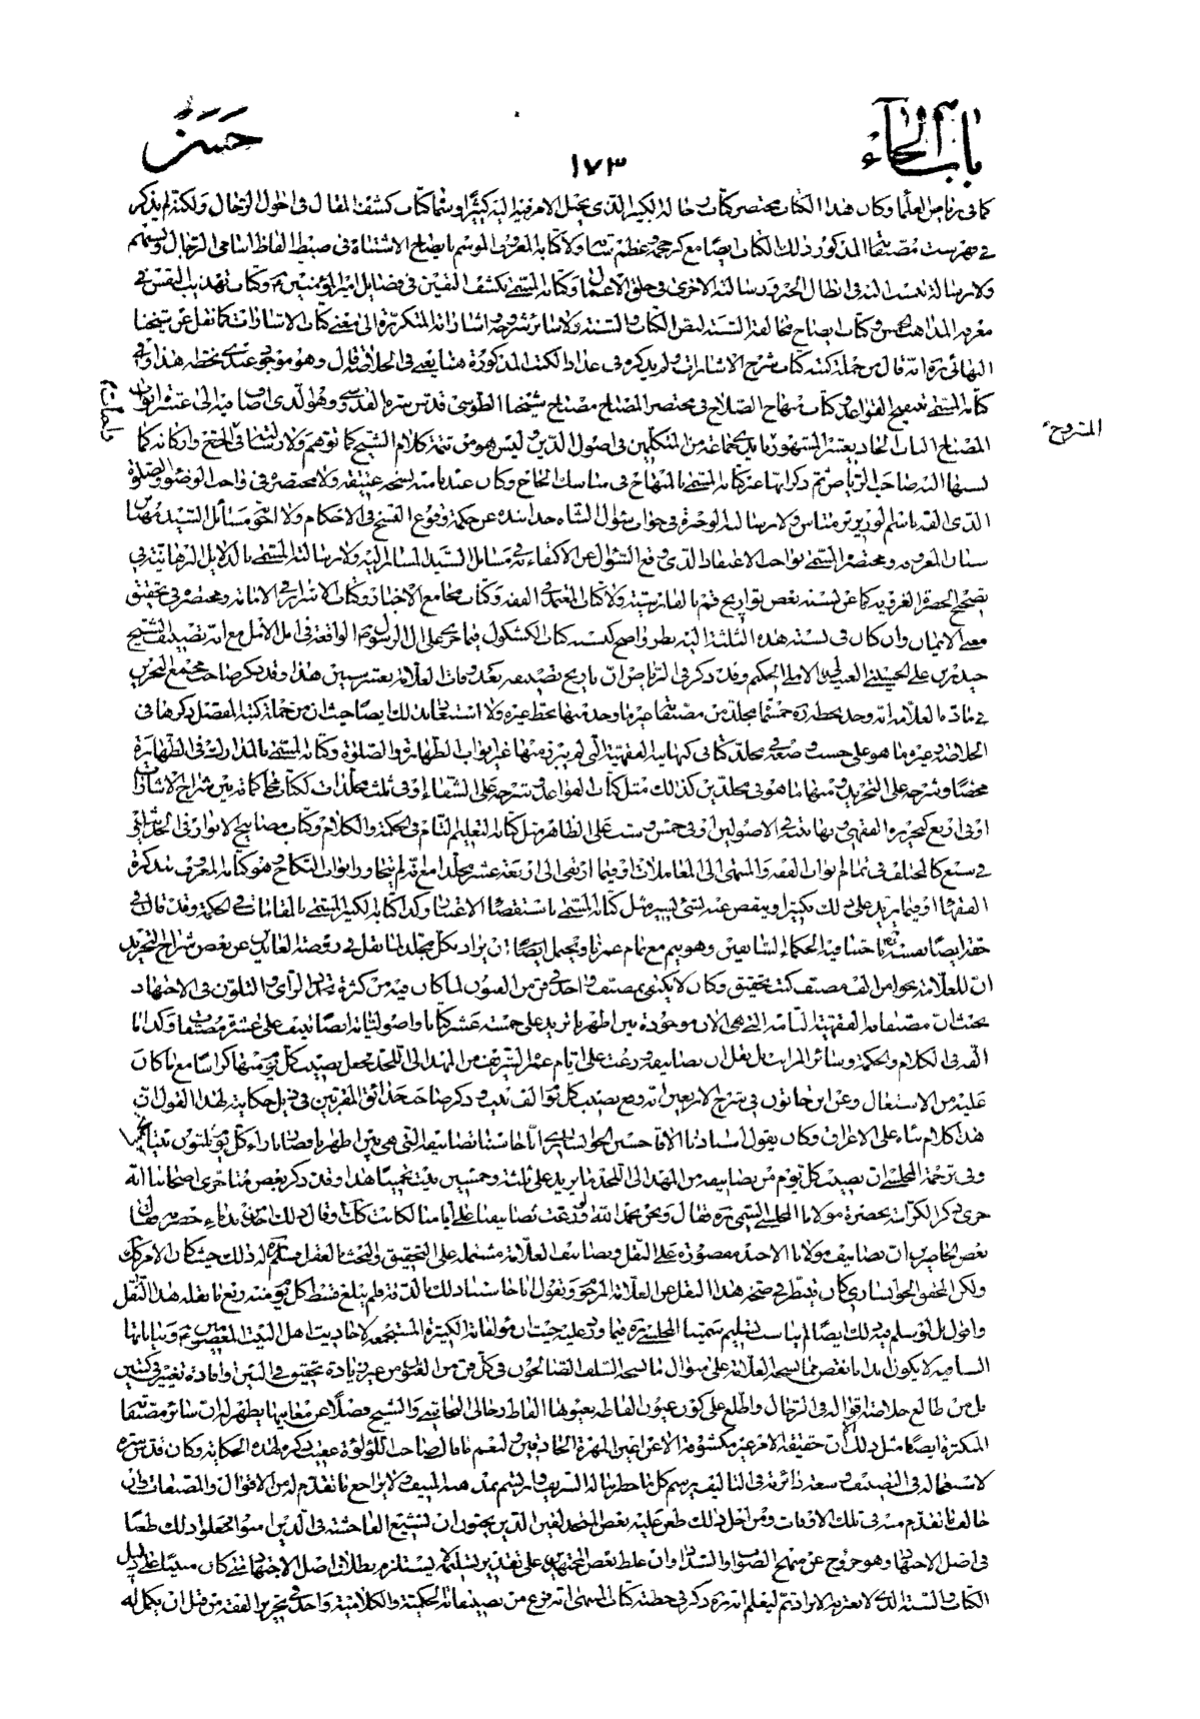 باب الحاء
حسن
١٧٣
كما فى رياض العلماء وكان هذا الكتاب مختصر كتاب رجاله الكبير الذى يحيل الامر فيه اليه كثيرا وسماه كتاب كشف المقال فى احوال الرجال ولكنه لم يذكر
فى فهرست مصنفاته المذكور ذلك الكتاب ايضا مع كبر حجمه وعظم شانه ولا كتابه المعروف الموسوم بايضاح الاشتباه فى ضبط الفاظ اسامى الرجال ونسبهم
ولا رسالته فى ابطال الجبر ورسالته الاخرى فى خلق الاعمال وكتابه المسمى بكشف اليقين فى فضايل امير المؤمنين وكتاب تهذيب النفس فى
معرفة المذاهب الخمس وكتاب ايضاح مخالفة السنة لنص الكتاب والسنة ولا سائر شروحه اشاراته المتكررة الى معنى كتاب الاشارات كما نقل عن شيخنا
البهائى ره انه قال من جملة كتبه كتاب شرح الاشارات ولم يذكره فى عداد الكتب المذكورة هنا يعنى فى الخلاصة قال وهو موجود عندى بخطه هذا وفى
كتابه المسمى تنقيح القواعد وكتاب منهاج الصلاح فى مختصر المصباح مصباح شيخنا الطوسى قدس سره القدسى وهو الذى اضاف اليه الى عشرة ابواب
المصباح الباب الحاديعشر المشهور بايدى جماعة من المتكلمين فى اصول الدين وليس هو من تتمة كلام الشيخ كما توهم ولا
نسبها اليه صاحب الرياض ثم ذكر انها غير كتابه المسمى بالمنهاج فى مناسك الحاج وكان عندنا منه نسخة عتيقة ولا مختصره فى واجب الوضوء والصلوة
الذى الفه باسم الوزير ولا رسالته الوجيزة فى جواب سؤال الشاه خدابنده عن حكمة وقوع النسخ فى الاحكام ولا اجوبة مسائل السيد مهنا بن
سنان المعروفة ومختصره المسمى بواجب الاعتقاد ولا رسالته المسماة بالدلايل البرهانية فى
تصحيح الحضرة الغروية كما عن نسبة بعض تواريخ قم بالفارسية ولا كتاب المعتمد فى الفقه وكتاب مجامع الاخبار وكتاب الاسرار فى الامامة ومختصره فى تحقيق
معنى الايمان وان كان فى نسبة هذه الثلثة اليه نظر واضح كنسبة كتاب الكشكول فيما جرى على ال الرسول الواقعة فى امل الامل مع انه تصنيف الشيخ
حيدر بن على الحسينى العبيدلى الاملى الحكيم وقد ذكر فى الرياض ان تاريخ تصنيفه بعد وفات العلامة بعشر سنين هذا وقد ذكر صاحب مجمع البحرين
فى مادة العلامة انه وجد بخطه ره خمسمائة مجلد من مصنفاته غير ما وجد منها بخط غيره ولا استبعاد لذلك ايضا حيث ان من جملة كتبه المفصل ذكرها فى
الخلاصة وغيره ما هو على حسب وضعه فى مجلد ككتابى نهايته الفقهية التى لم يبرز منها غير ابواب الطهارة والصلوة وكتابه المسمى بالمدارك فى الطهارة
محضا وشرحه على التجريد ومنها ما هو فى مجلدين كذلك مثل كتاب القواعد وشرحه على الشفاء او فى ثلث مجلدات ككتاب محاكماته بين شراح الاشارات
او فى اربع كتحريره الفقهى ونهايته فى الاصولين او فى خمس وست على الظاهر مثل كتابه التعليم التام فى الحكمة والكلام وكتاب مصابيح الانوار فى الحديث او
فى سبع كالمختلف فى تمام ابواب الفقه والمنتهى الى المعاملات او فيما ارتقى الى اربعة عشر مجلدا مع انه لم يتجاوز ابواب النكاح وهو كتابه المعروف بتذكرة
الفقهاء او فيما يزيد على ذلك بكثير او ينقص عنه بشئ يسير مثل كتابه المسمى باستقصاء الاعتبار وكذا كتابه الكبير المسمى بالمقامات فى الحكمة وقد قال فى
حقه ايضا بنفسه باحثنا فيه الحكماء السابقين وهو يتم مع تمام عمرنا ويحتمل ايضا ان يراد بكل مجلد لما نقل فى روضة العابدين عن بعض شراح التجريد
ان للعلامة نحوا من الف مصنف كتب تحقيق وكان لا يكتفى بمصنف واحد فى فن من الفنون لما كان فيه من كثرة تجدد الراى والتلون فى الاجتهاد
بحيث ان مصنفاته الفقهية التامة التى هى الان موجودة بين اظهرنا تزيد على خمسة عشر كتابا واصولياته ايضا تنيف على عشر مصنفات وكذا ما
الفه فى الكلام والحكمة وسائر المراتب بل نقل ان تصانيفه وزعت على ايام عمره الشريف من المهد الى اللحد فجعل نصيب كل يوم منها كراسا مع ما كان
عليه من الاشتغال وعن ابن خاتون فى شرح الاربعين انه وقع نصيب كل يوم الف بيت وذكر صاحب حدائق المقربين فى ذيل حكاية لهذا القول ان
هذا كلام بناء على الاغراق وكان يقول استادنا الاقا حسين الخوانسارى انا حاسبنا تصانيفه التى هى بين اظهرنا فصار بازاء كل يوم ثلثون بيتا تخمينا
وفى ترجمة المجلسى ان نصيب كل يوم من تصانيفه من المهد الى اللحد ما يزيد على ثلثة وخمسين بيت تخمينا هذا وقد ذكر بعض متاخرى اصحابنا انه
جرى ذكر الكراسة بحضرة مولانا المجلسى السمى ره فقال ونحن بحمد الله لو وزعت تصانيفنا على ايامنا لكانت كذلك فقال ذلك احد
بعض الحاضرين ان تصانيف مولانا الاخند مقصورة على النقل وتصانيف العلامة مشتملة على التحقيق والبحث بالعقل فسلم ره له ذلك حيث كان الامر كذلك
ولكن المحقق الخوانسارى كان ينظر فى صحة هذا النقل عن العلامة المرحوم ويقول انا حاسبنا ذلك بالدقة فلم يبلغ قسط كل يوم منه ربع ما نقله هذا النقل
واقول بل لو سلم فيه ذلك ايضا لما يناسب تسليم سمينا المجلسى ره فيما ورد عليه حيث ان مؤلفاته الكثيرة المستجمعة لاحاديث اهل البيت المعصومين وبياناتها
الشافية لا يكون ابدا بانقص مما نسخه العلامة على منوال ما نسخه السلف الصالحون فى كل فن من الفنون من غير زيادة تحقيق فى البين وافادة تغيير فى كتبين
بل من طالع خلاصة اقواله فى الرجال واطلع على كون عيون الفاظه بعينها الفاظ رجالى النجاشى والشيخ فضلا عن معانيها يظهر له ان سائر مصنفاته
المتكثرة ايضا مثل ذلك الا ان حقيقة الامر غير مكشوفة الا عن اعين المهرة الحاذقين ولنعم ما قال صاحب اللؤلؤة عقيب ذكره لهذه الحكاية وكان قدس سره
لاستعجاله فى التصنيف وسعة دائرته فى التاليف يرسم كل ما خطر بباله الشريف وارتسم بذهنه المنيف ولا يراجع ما تقدم له من الاقوال والمصنفات وان
خالف ما تقدم منه فى تلك الاوقات ومن اجل ذلك طعن عليه بعض المخالفين الذين يحبون ان تشيع الفاحشة فى الذين امنوا بل جعلوا ذلك طعنا
فى اصل الاجتهاد وهو خروج عن منهج الصواب والسداد وان غلط بعض المجتهدين على تقدير تسليمه لا يستلزم بطلان اصل الاجتهاد متى كان مبنيا على دليل
الكتاب والسنة الذى لا يعتريه الايراد ثم ليعلم انه ره ذكر فى خطبة كتاب المنتهى انه فرغ من تصنيفاته الحكمية والكلامية واخذ فى تحرير الفقه من قبل ان يكمل له